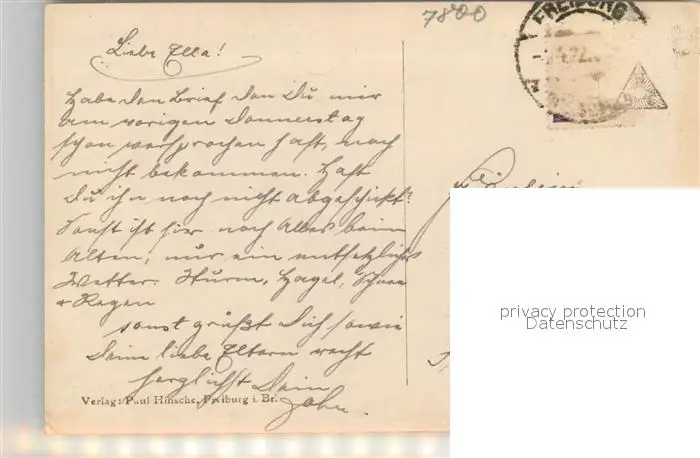 7800
FREIBURG
Liebe Ella!
Habe den Brief den Du mir
am vorigen Donnerstag
schon versprochen hast, noch
nicht bekommen. Hast
Du ihn noch nicht abgeschickt?
Sonst ist hier noch Alles beim
Alten, nur ein entsetzliches
Wetter. Sturm, Hagel, Schnee
& Regen
sonst grüßt Dich sowie
Deine liebe Eltern recht
herzlichst Dein
John.
Verlag: Paul Hinsche, Freiburg i. Br.
privacy protection
Datenschutz